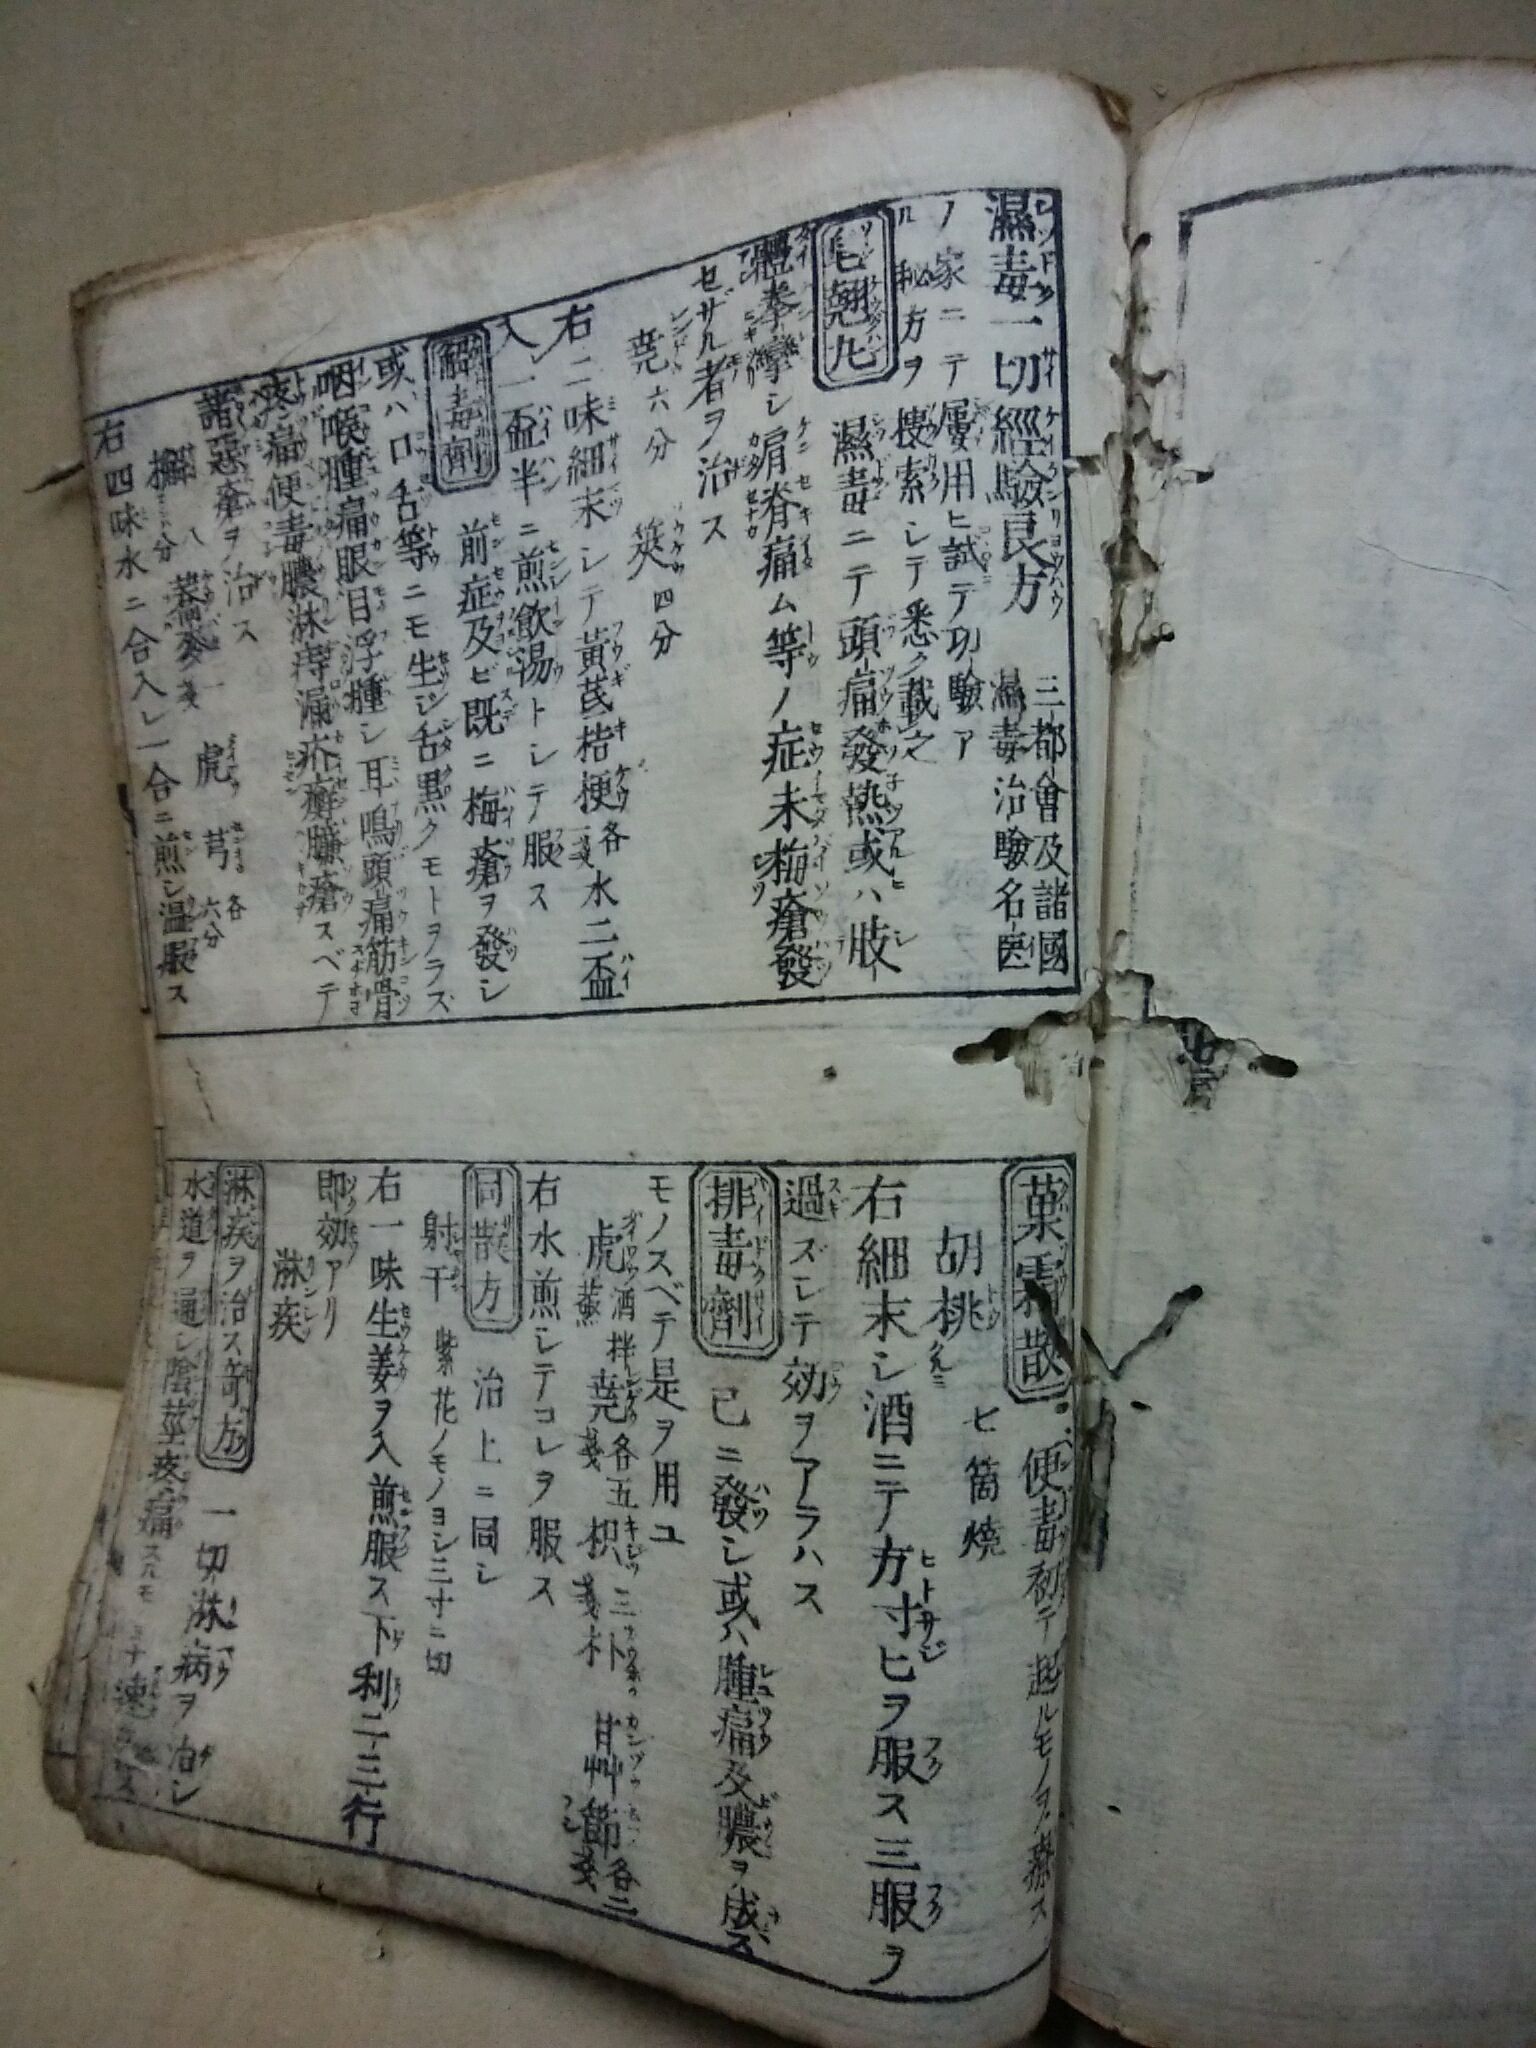 濕毒一切經驗良方　三都會及諸國
濕毒治驗名医
ノ家ニテ屢用ヒ試テ功驗ア
ル秘方ヲ捜索シテ悉ク載之
濕毒ニテ頭痛發熱或ハ肢
體拳攣シ肩脊痛ム等ノ症未梅瘡發
セザル者ヲ治ス
蕘六分　莢四分
右二味細末シテ黃芪桔梗各水二盃
入レ一盃半ニ煎飲湯トシテ服ス
解毒劑　前症及ビ既ニ梅瘡ヲ發シ
或ハ口舌等ニモ生ジ舌黒クモトヲラズ
咽喉腫痛眼目浮腫シ耳鳴頭痛筋骨
疼痛便毒膿淋痔漏疥癬臁瘡スベテ
諸惡瘡ヲ治ス
虎　芎各六分
右四味水二合入レ一合ニ煎シ温服ス
菓霜散　便毒初テ起ルモノヲ療ス
胡桃　七箇燒
右細末シ酒ニテ方寸ヒヲ服ス三服ヲ
過ズレテ効ヲアラハス
排毒劑　已ニ發シ或ハ腫痛及膿ヲ成ス
モノスベテ是ヲ用ユ
虎　酒拌　蕘各五　枳三　朴　甘艸節各二
右水煎シテコレヲ服ス
同散方　治上ニ同シ
射干　紫花ノモノヨシ三寸ニ切
右一味生姜ヲ入煎服ス下利二三行
即効アリ
淋疾
淋疾ヲ治ス竒方　一切淋病ヲ治シ
水道ヲ通シ陰莖疼痛スルモ